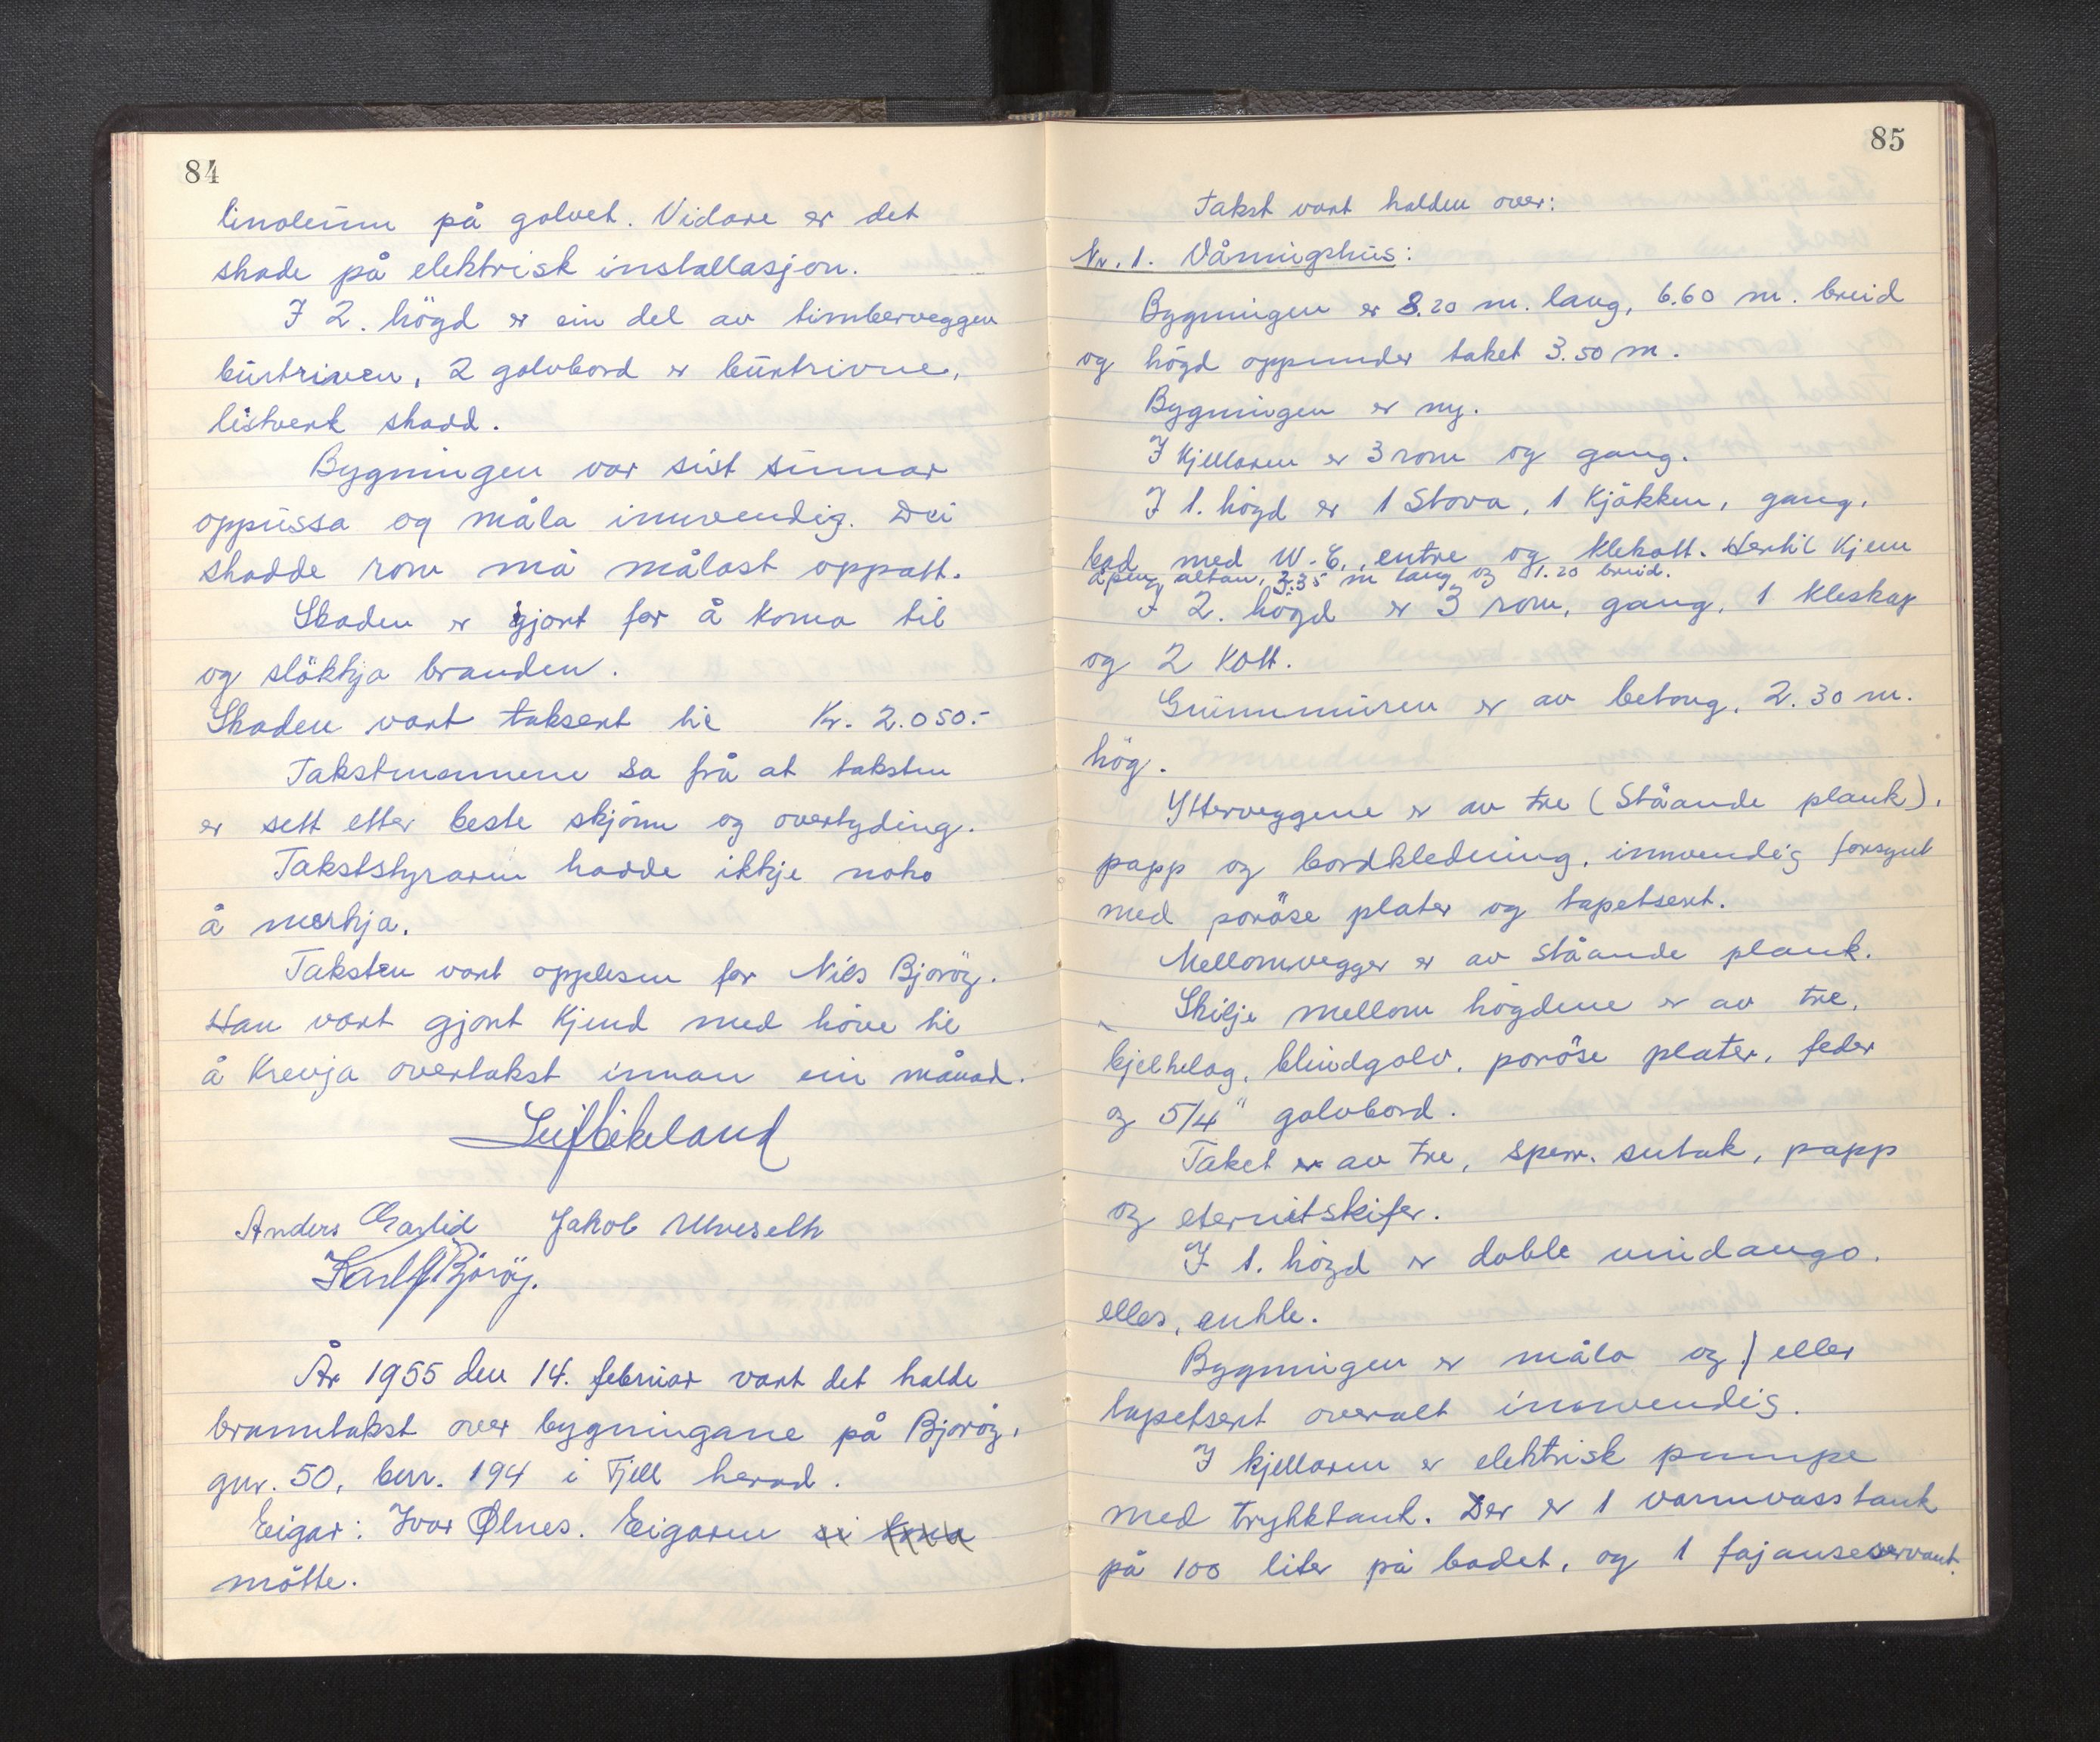 84
linoleum på golvet. Vidare er det
skade på elektrisk installasjon.
I 2. högd er ein del av timberveggen
burtriven, 2 golvbord er burtrivne,
listverk skadd.
Bygningen var sist sumar
oppussa og måla innvendig. Dei
skadde rom må målast oppatt.
Skaden er gjort for å koma til
og slökkja branden.
Skaden vart taksert til Kr. 2.050.-
Takstmennene sa frå at taksten
er sett etter beste skjönn og overtyding.
Takststyraren hadde ikkje noko
å merkja.
Taksten vart opplesen for Nils Bjoröy.
Han vart gjort kjend med höve til
å krevja overtakst innan ein månad.
Leif Eikeland
Anders Jakob Ulveseth
Karl Bjoröy.
År 1955 den 14. februar vart det halde
branntakst over bygningane på Bjoröy,
gnr. 50, bnr. 194 i Fjell herad.
Eigar: Ivar Ølnes. Eigaren
mötte.
85
Takst vart halden over:
Nr. 1. Våningshus:
Bygningen er 8.20 m. lang, 6.60 m. breid
og högd oppunder taket 3.50 m.
Bygningen er ny.
I Kjellaren er 3 rom og gang.
I 1. högd er 1 Stova, 1 Kjökken, gang,
bad med W.C., entre og klekott. Hertil Kjem
åpen altan, 3.35 m lang og 1.20 breid.
I 2. högd er 3 rom, gang, 1 kleskap
og 2 Kott.
Grunnmuren er av betong, 2.30 m.
hög.
Ytterveggene er av tre (Ståande plank),
papp og bordkledning, innvendig forsynt
med poröse plater og tapetsert.
Mellomvegger er av Ståande plank.
Skilje mellom högdene er av tre,
bjelkelag, blindgolv, poröse plater, feder
og 5/4" golvbord.
Taket er av tre, sperr. sutak, papp
og eternitskifer.
I 1. högd er doble vindaugo,
elles, enkle.
Bygningen er måla og / eller
tapetsert overalt innvendig.
I kjellaren er elektrisk pumpe
med trykktank. Der er 1 varmvasstank
på 100 liter på badet, og 1 fajanseservant.